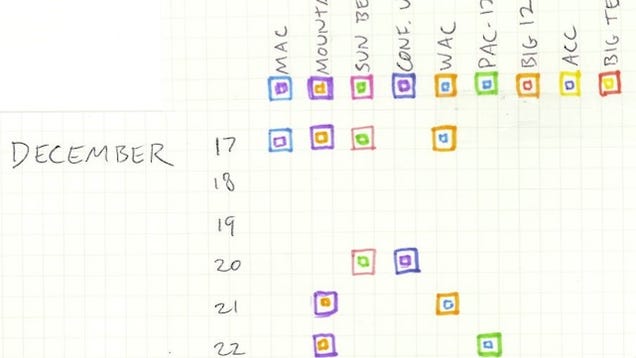 MAC
MOUNTA
SUN BE
CONF. U
WAC
PAC-12
BIG 12
ACC
BIG TE
DECEMBER 17
18
19
20
21
22